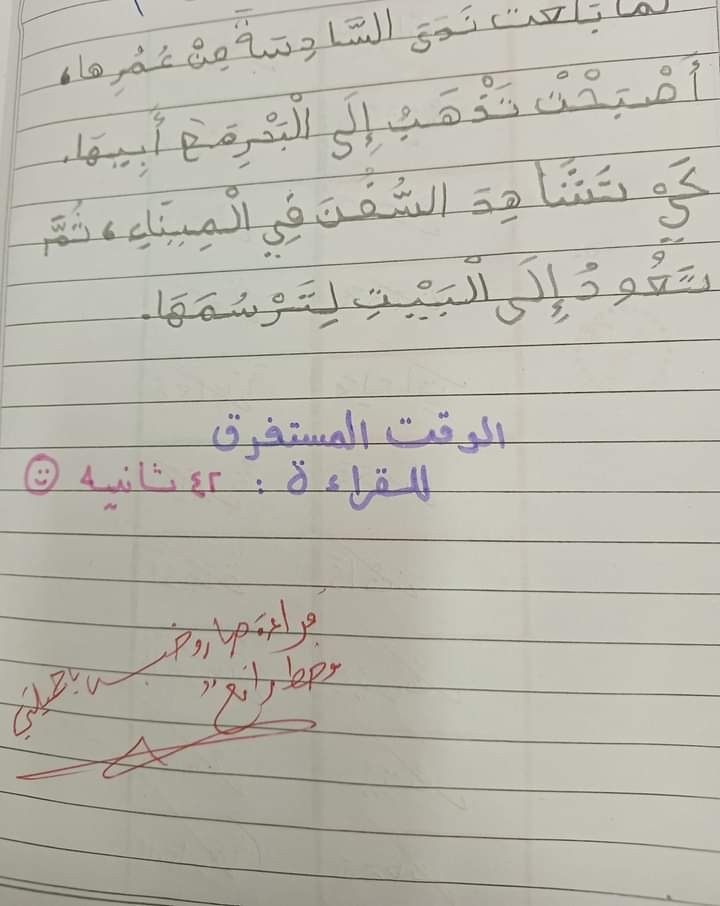 لما بلغت ندى السَّادِسَةَ مِنْ عُمُرِها،
أَصْبَحْتْ تَذْهَبُ إِلَى الْبَحْرِ مَعَ أَبِيهَا.
كَي تُشَاهِدَ السُّفُنَ فِي الْمِينَاءِ، ثُمَّ
تَعُودُ إِلَى الْبَيْتِ لِتَرْسُمَهَا.
الوقت المستغرق
للقراءة : ٤٢ ثانيه
قراءة
وخط رائع